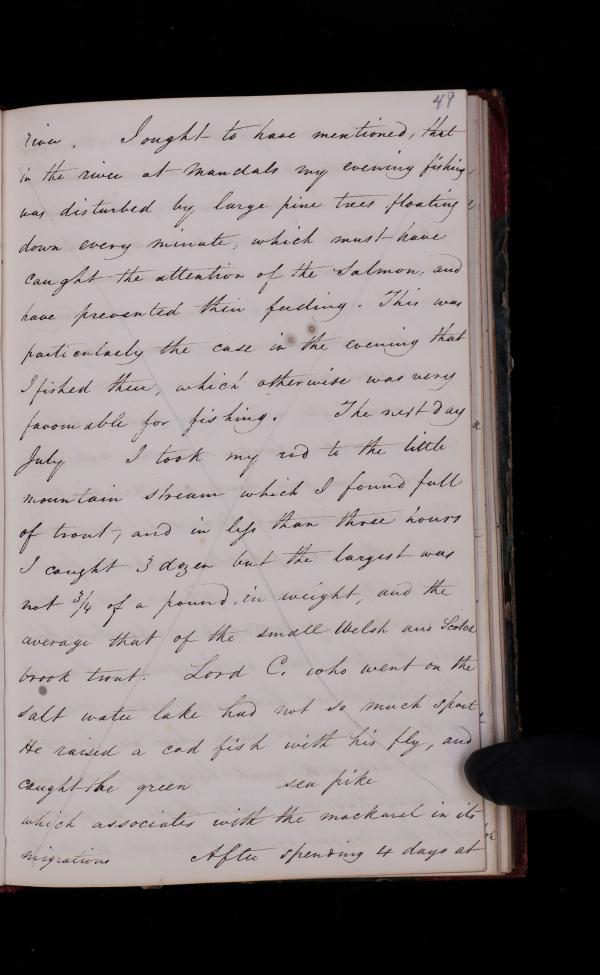 49
river. I ought to have mentioned, that
in the river at Mandals my evening fishing,
was disturbed by large pine trees floating
down every minute, which must have
caught the attention of the Salmon, and
have prevented their feeding. This was
particularly the case in the evening that
I fished there, which otherwise was very
favourable for fishing. The next day
July I took my rod to the little
mountain stream which I found full
of trout, and in less than three hours
I caught 3 dozen but the largest was
not 3/4 of a pound in weight, and the
average that of the small Welsh and Scotch
brook trout. Lord C. who went on the
salt water lake had not so much sport
He raised a cod fish with his fly, and
caught the green sea pike
which associates with the mackarel in its
migrations After spending 4 days at